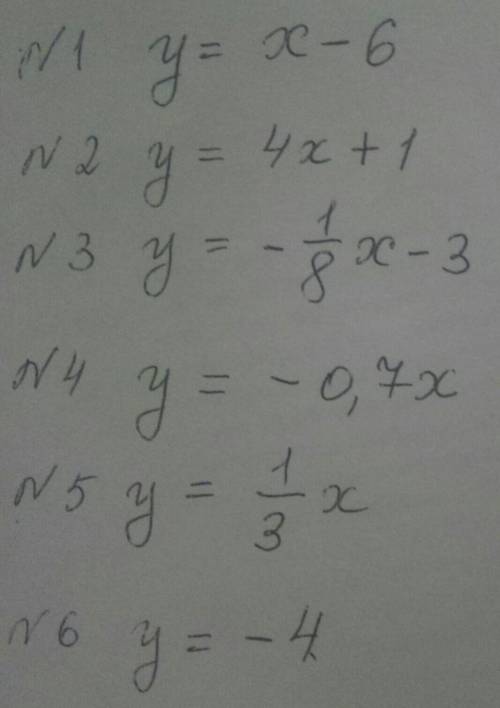 N1 y = x - 6
N2 y = 4x + 1
N3 y = - 1/8 x - 3
N4 y = - 0,7x
N5 y = 1/3 x
N6 y = - 4